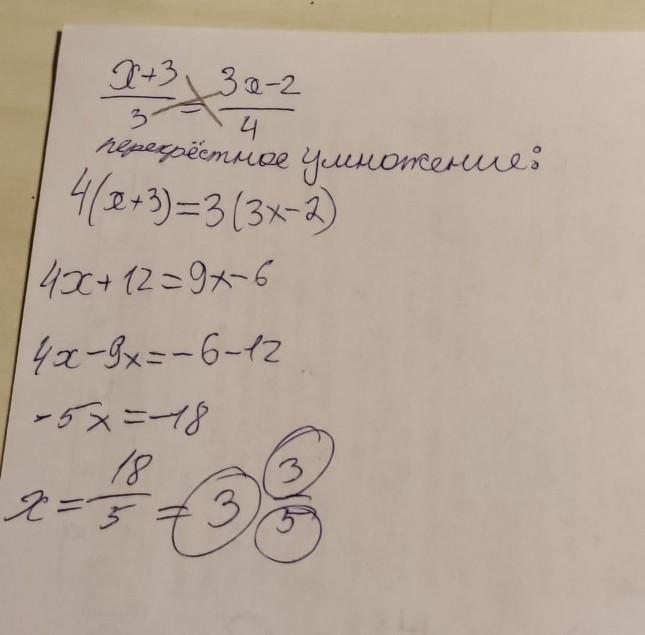 x+3/3 = 3x-2/4
перекрёстное умножение:
4(x+3)=3(3x-2)
4x+12=9x-6
4x-9x=-6-12
-5x=-18
x=18/5=3 3/5